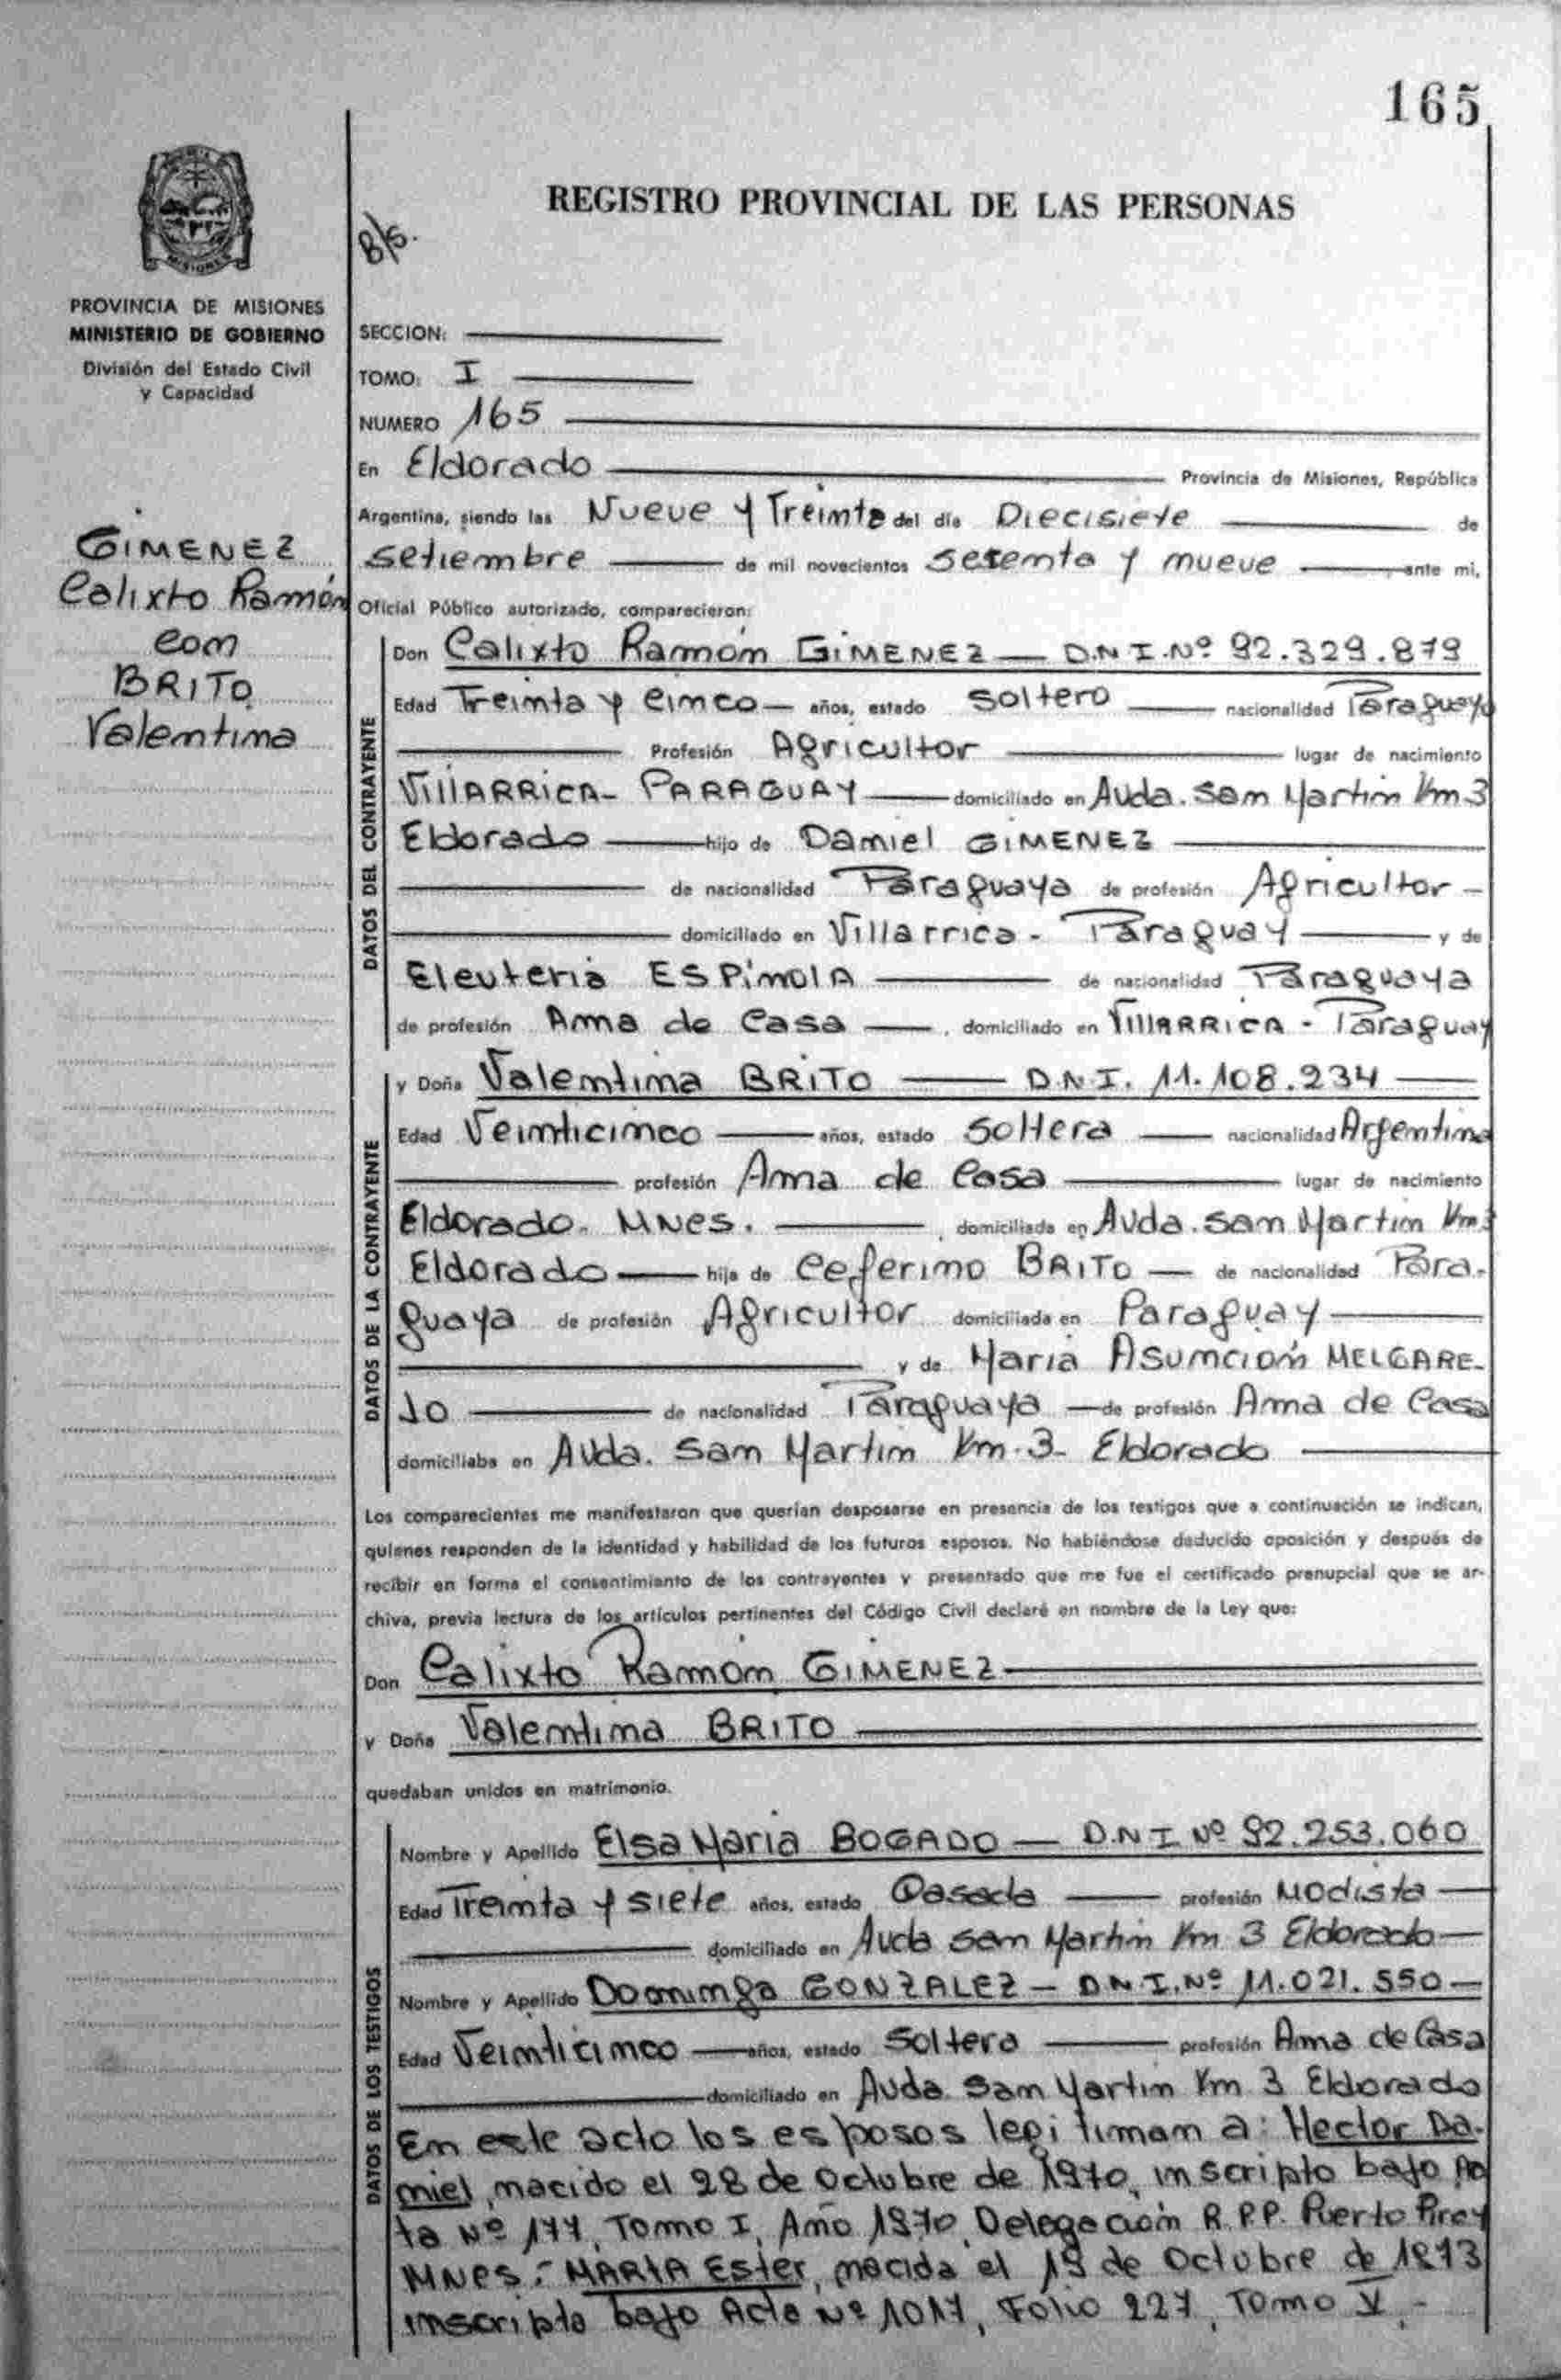 165
REGISTRO PROVINCIAL DE LAS PERSONAS
B/s.
MISIONES
PROVINCIA DE MISIONES
MINISTERIO DE GOBIERNO
División del Estado Civil
y Capacidad
SECCION:
TOMO: I
NUMERO 165
En Eldorado Provincia de Misiones, República
Argentina, siendo las Nueve y Treinta del día Diecisiete de
setiembre de mil novecientos setenta y nueve ante mi,
Oficial Público autorizado, comparecieron:
GIMENEZ
Calixto Ramón
con
BRITO
Valentina
DATOS DEL CONTRAYENTE
Don Calixto Ramón GIMENEZ — D.N.I.Nº 92.329.879
Edad Treinta y cinco — años, estado soltero nacionalidad Paraguayo
Profesión Agricultor lugar de nacimiento
VillARRICA - PARAGUAY domiciliado en Avda. San Martin Km 3
Eldorado hijo de Daniel GIMENEZ
de nacionalidad Paraguaya de profesión Agricultor -
domiciliado en Villarrica - Paraguay y de
Eleuteria ESPiNOlA de nacionalidad Paraguaya
de profesión Ama de Casa , domiciliado en VillARRICA - Paraguay
DATOS DE LA CONTRAYENTE
y Doña Valentina BRITO — D.N.I. 11.108.234
Edad Veinticinco años, estado soltera nacionalidad Argentina
profesión Ama de Casa lugar de nacimiento
Eldorado. Mnes. , domiciliada en Avda. San Martin Km 3
Eldorado hija de Ceferino BRITO — de nacionalidad Para-
guaya de profesión Agricultor domiciliada en Paraguay
y de Maria Asunción MELGARE-
JO de nacionalidad Paraguaya — de profesión Ama de Casa
domiciliaba en Avda. San Martin Km. 3 - Eldorado
Los comparecientes me manifestaron que querían desposarse en presencia de los testigos que a continuación se indican,
quienes responden de la identidad y habilidad de los futuros esposos. No habiéndose deducido oposición y después de
recibir en forma el consentimiento de los contrayentes y presentado que me fue el certificado prenupcial que se ar-
chiva, previa lectura de los artículos pertinentes del Código Civil declaré en nombre de la Ley que:
Don Calixto Ramón GIMENEZ
y Doña Valentina BRITO
quedaban unidos en matrimonio.
DATOS DE LOS TESTIGOS
Nombre y Apellido Elsa Maria BOGADO — D.N.I Nº 92.253.060
Edad Treinta y siete años, estado Casada profesión Modista
domiciliado en Avda San Martin Km 3 Eldorado
Nombre y Apellido Dominga GONZALEZ - D.N.I.Nº 11.021.550
Edad Veinticinco años, estado Soltera profesión Ama de Casa
domiciliado en Avda San Martin Km 3 Eldorado
En este acto los esposos legitiman a: Hector Da-
niel, nacido el 28 de Octubre de 1970, inscripto bajo Ac
ta Nº 177, Tomo I, Año 1970, Delegación R.P.P. Puerto Piray
Mnes: MARIA Ester, nacida el 19 de Octubre de 1973
inscripta bajo Acta Nº 1017, Folio 227, Tomo V.-